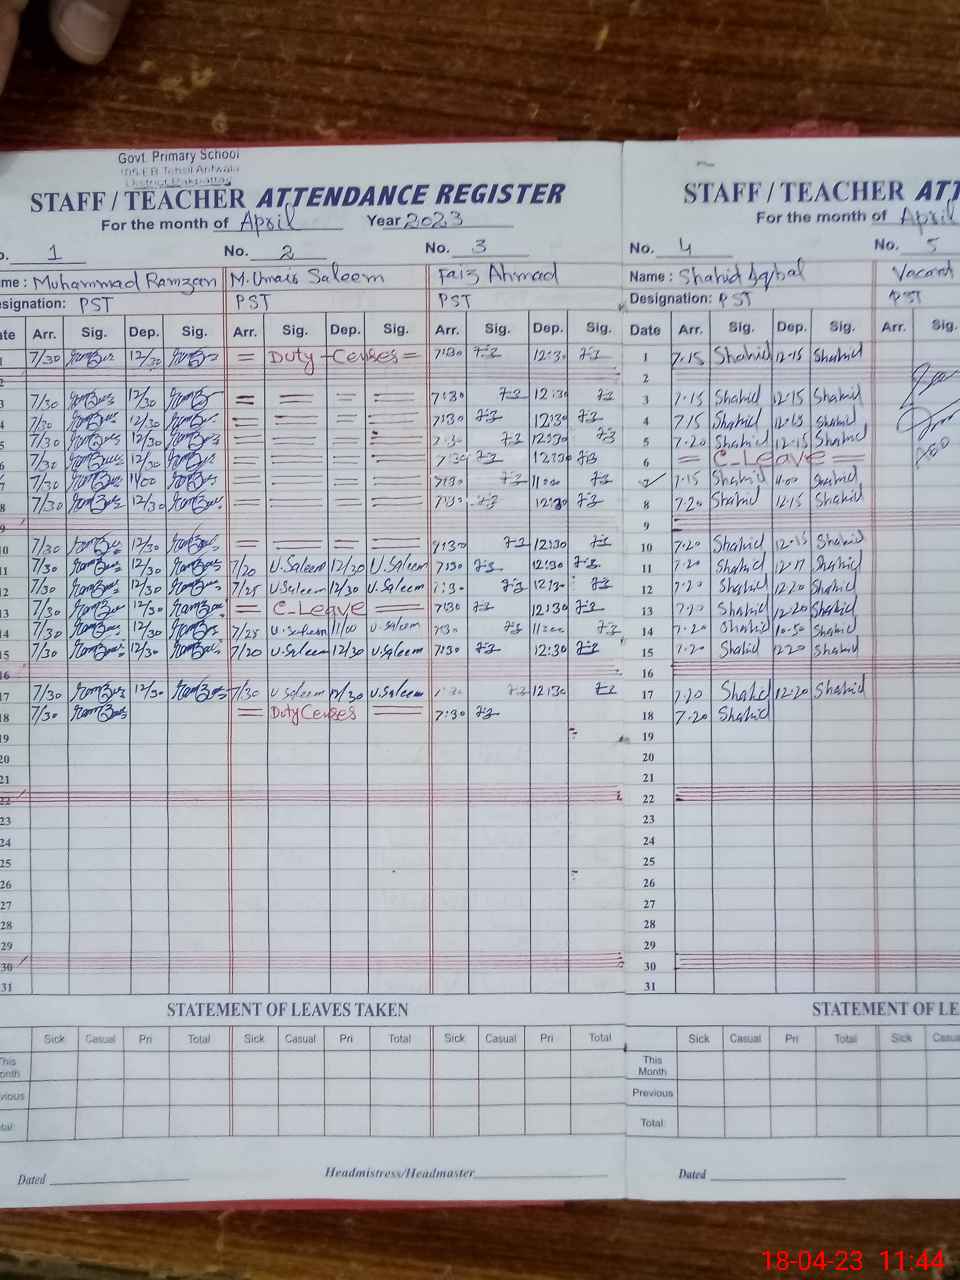 Govt. Primary School
STAFF / TEACHER ATTENDANCE REGISTER
For the month of April Year 2023
No. 1 No. 2 No. 3
Name : Muhammad Ramzan M. Umais Saleem Faiz Ahmad
Designation: PST PST PST
Date Arr. Sig. Dep. Sig. Arr. Sig. Dep. Sig. Arr. Sig. Dep. Sig.
1 7/30 12/30 = Duty - Censes = 7:30 12:30
2
3 7/30 12/30 = = = = 7:30 12:30
4 7/30 12/30 = = = = 7:30 12:30
5 7/30 12/30 = = = = 7:30 12:30
6 7/30 12/30 = = = = 7:30 12:30
7 7/30 11/00 = = = = 7:30 11:00
8 7/30 12/30 = = = = 7:30 12:30
9
10 7/30 12/30 = = = = 7:30 12:30
11 7/30 12/30 7/20 U.Saleem 12/30 U.Saleem 7:30 12:30
12 7/30 12/30 7/25 U.Saleem 12/30 U.Saleem 7:30 12:30
13 7/30 12/30 = C-Leave = 7:30 12:30
14 7/30 12/30 7/25 U.Saleem 11/00 U.Saleem 7:30 11:00
15 7/30 12/30 7/20 U.Saleem 12/30 U.Saleem 7:30 12:30
16
17 7/30 12/30 7/30 U.Saleem U.Saleem 12:30
18 7/30 = Duty Censes = 7:30
19
20
21
22
23
24
25
26
27
28
29
30
31
STATEMENT OF LEAVES TAKEN
Sick Casual Pri Total Sick Casual Pri Total Sick Casual Pri Total
This Month
Previous
Total
Dated Headmistress/Headmaster
STAFF / TEACHER ATT
For the month of April
No. 4 No. 5
Name : Shahid Iqbal Vacant
Designation: PST PST
Date Arr. Sig. Dep. Sig. Arr. Sig.
1 7-15 Shahid 12-15 Shahid
2
3 7-15 Shahid 12-15 Shahid
4 7-15 Shahid 12-15 Shahid
5 7-20 Shahid 12-15 Shahid
6 = C-Leave =
7 7-15 Shahid 11-00 Shahid
8 7-20 Shahid 12-15 Shahid
9
10 7-20 Shahid 12-15 Shahid
11 7-20 Shahid Shahid
12 7-20 Shahid 12-20 Shahid
13 7-20 Shahid 12-20 Shahid
14 7-20 Shahid 10-50 Shahid
15 7-20 Shahid 12-20 Shahid
16
17 7-20 Shahid 12-20 Shahid
18 7-20 Shahid
19
20
21
22
23
24
25
26
27
28
29
30
31
STATEMENT OF LE
Sick Casual Pri Total Sick Casua
This Month
Previous
Total
Dated
18-04-23 11:44